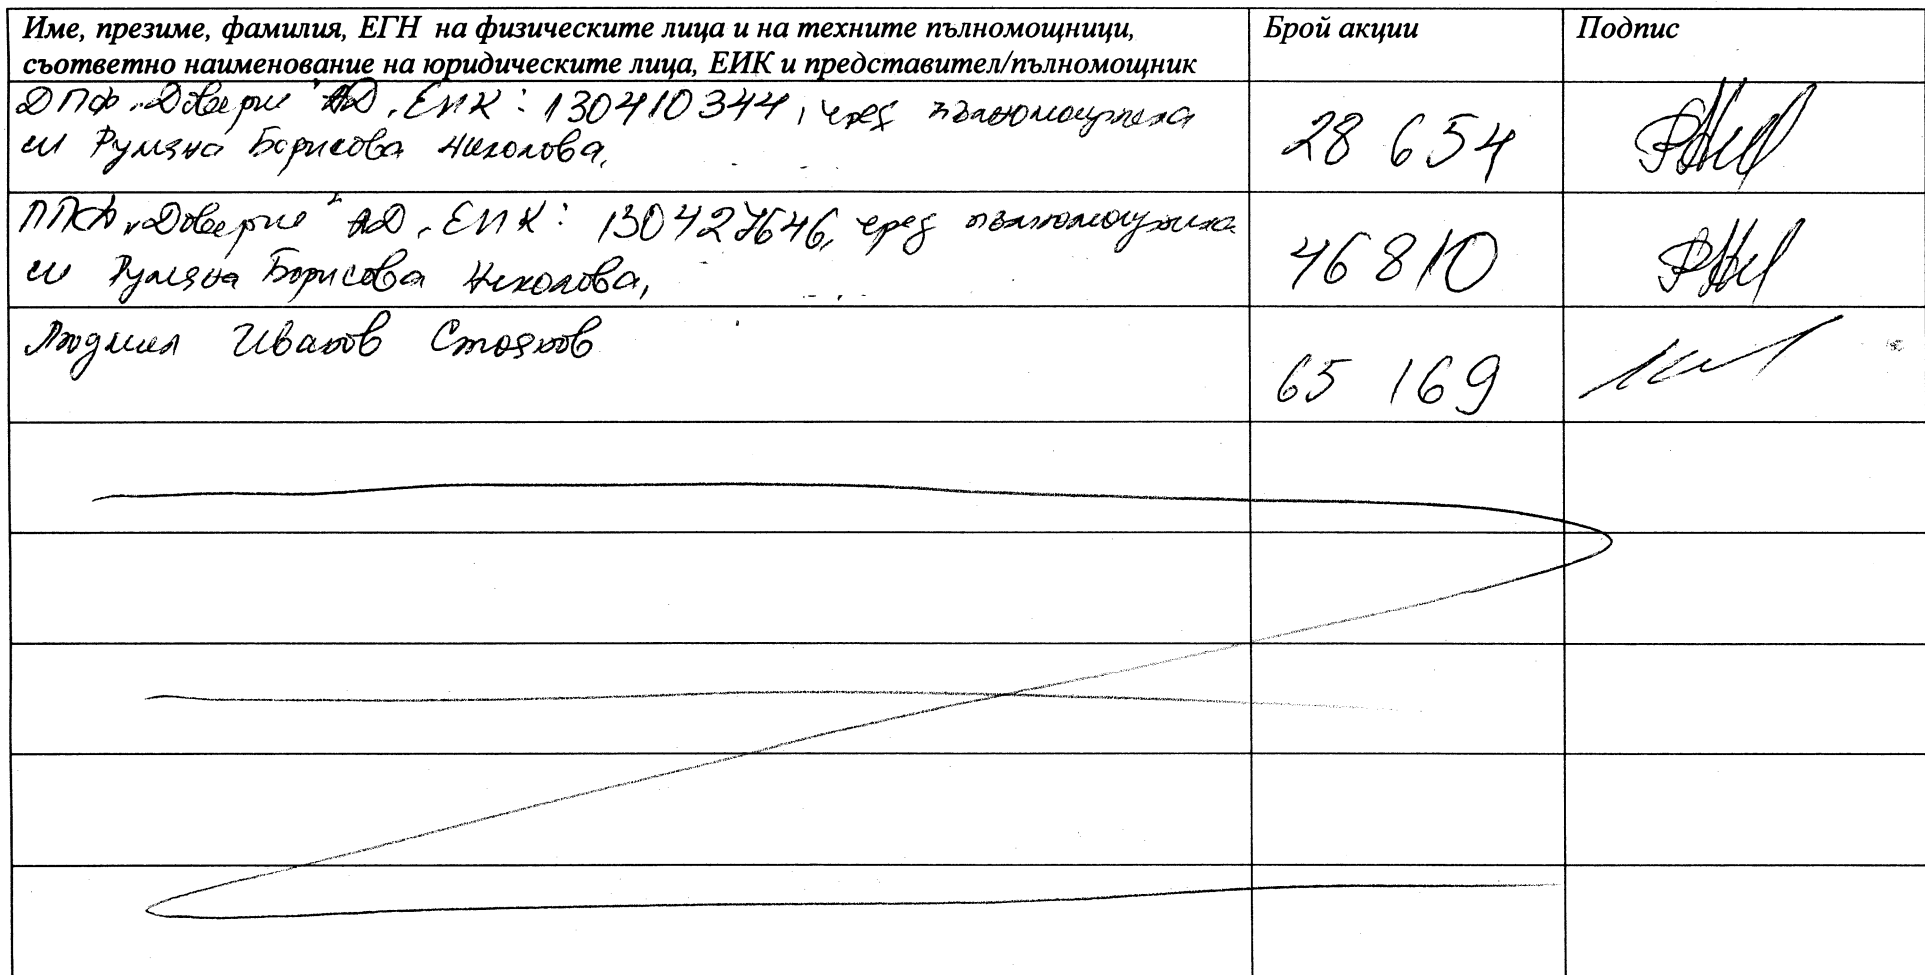 Име, презиме, фамилия, ЕГН на физическите лица и на техните пълномощници,
съответно наименование на юридическите лица, ЕИК и представител/пълномощник
Брой акции
Подпис
ДПФ „Доверие" АД, ЕИК: 130410344, чрез пълномощника
си Румяна Борисова Николова,
28 654
ППФ „Доверие" АД, ЕИК: 130427646, чрез пълномощника
си Румяна Борисова Николова,
46 810
Людмил Иванов Стоянов
65 169